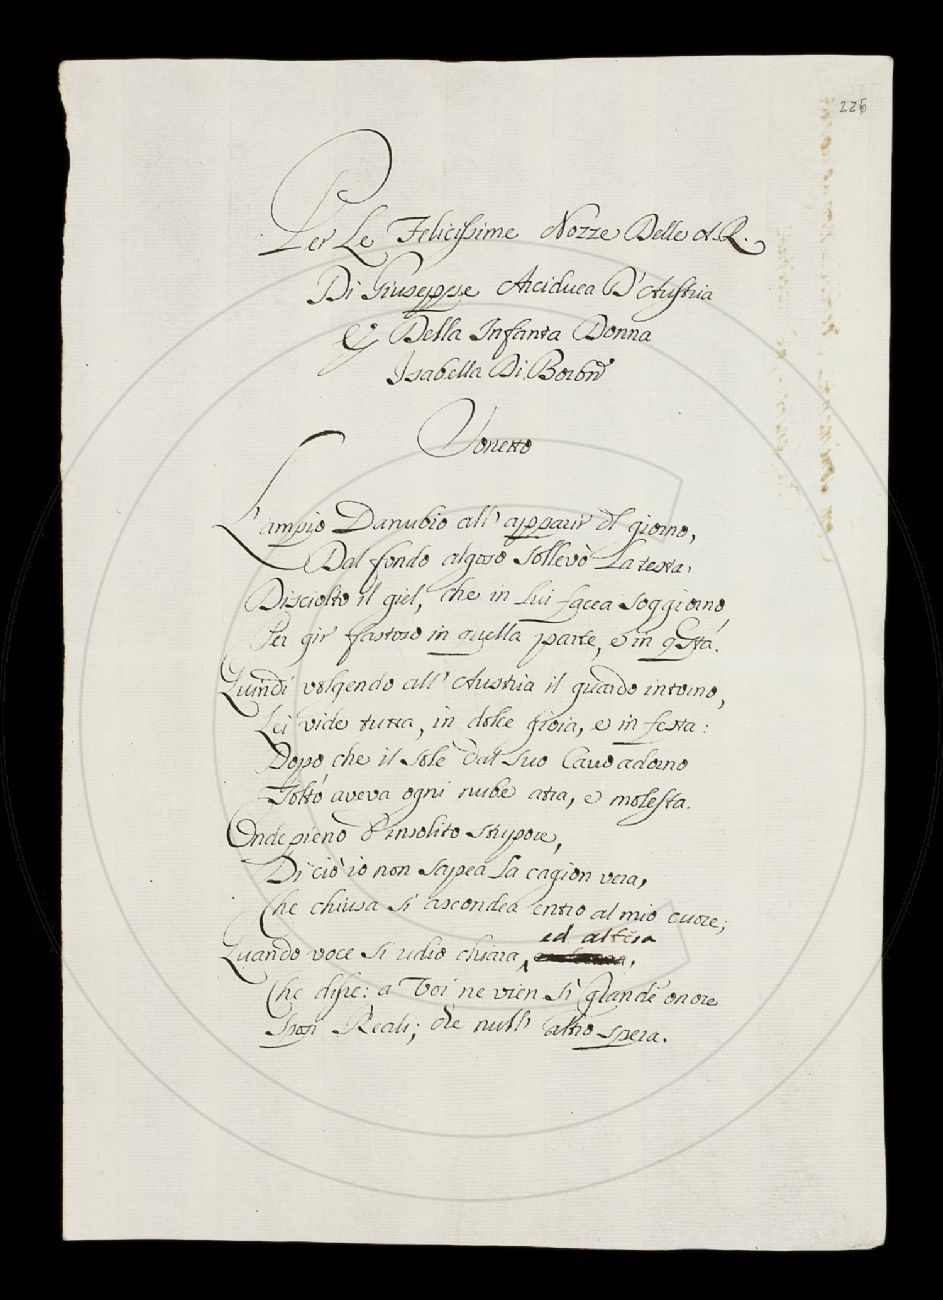 226
Per Le Felicissime Nozze Delle A. R.
Di Giuseppe Arciduca D'Austria
E Della Infanta Donna
Isabella Di Borbn̄
Sonetto
L'ampio Danubio all' apparir del giorno,
Dal fondo algoso sollevò La testa,
Disciolto il giel, che in Lui facea soggiorno,
Per gir fastoso in quella parte, e in qsta.
Quindi volgendo all' Austria il guardo intorno,
Lei vide tutta, in dolce gioia, e in festa:
Dopo che il sole dal suo Cavo adorno
Tolto aveva ogni nube atra, e molesta.
Onde pieno d'insolito stupore,
Di ciò io non sapea La cagion vera,
Che chiusa si ascondea entro al mio cuore;
ed altera
Quando voce si udio chiara,
Che disse: a Voi ne vien sì grande onore
Sposi Reali; che null' altro spera.